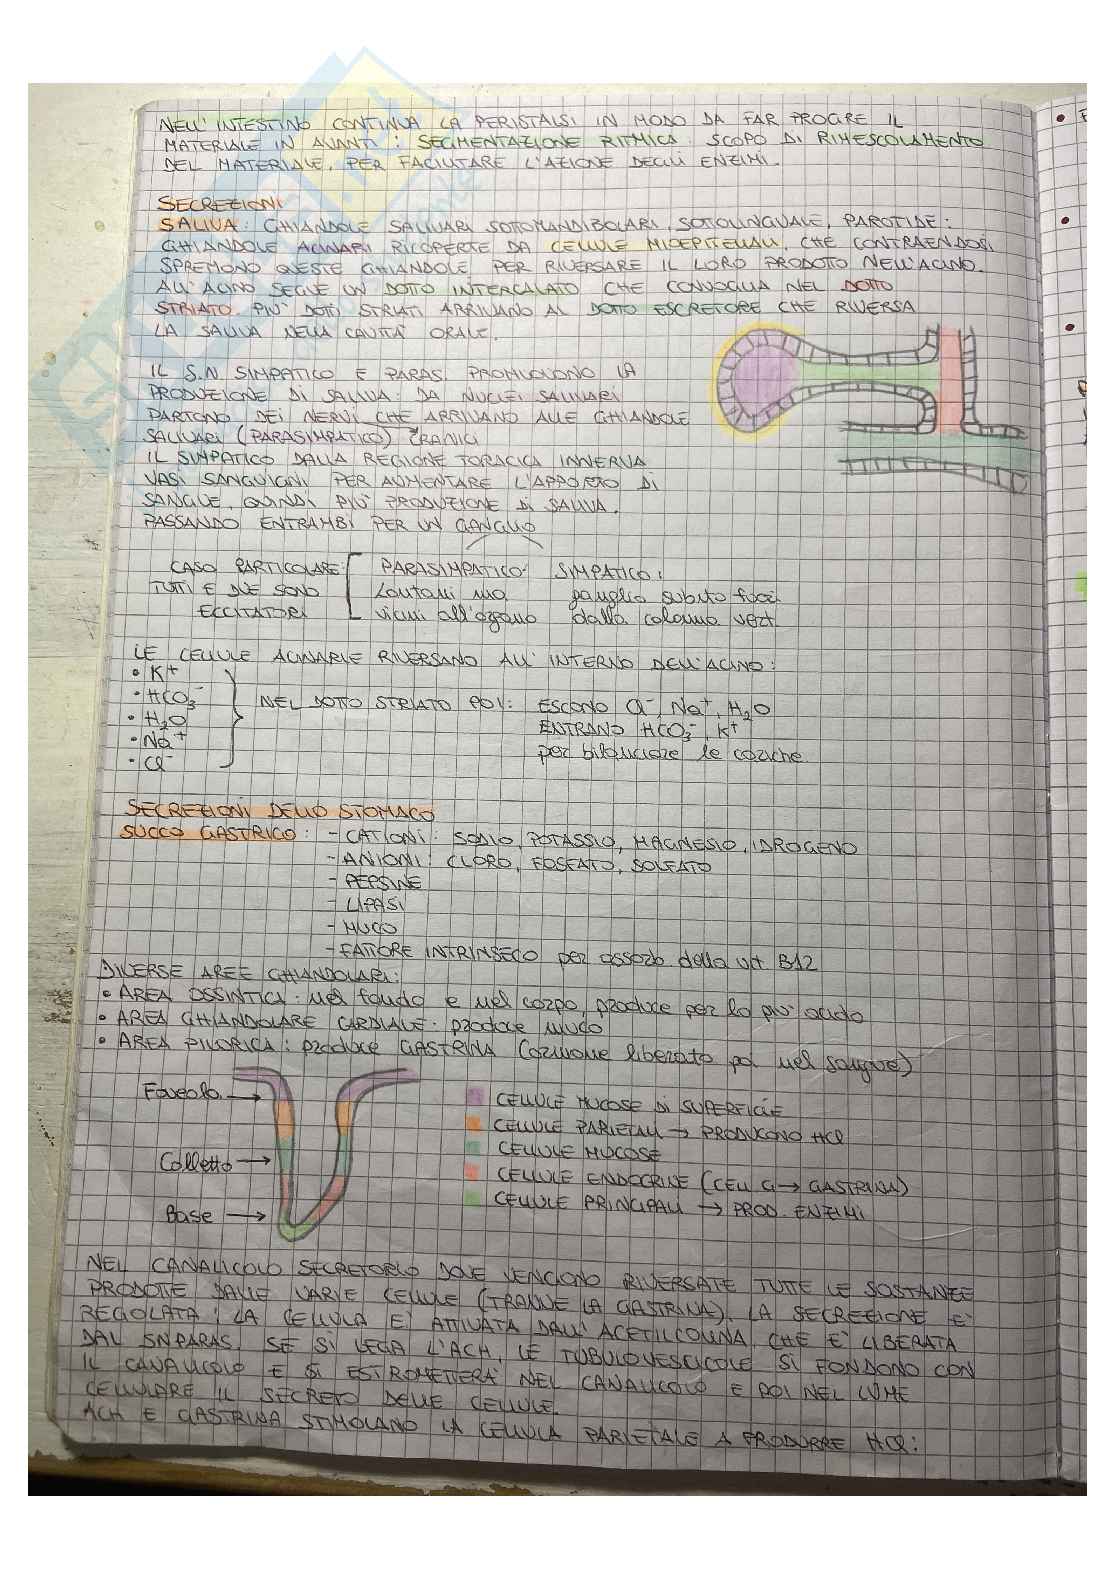 NELL'INTESTINO CONTINUA LA PERISTALSI IN MODO DA FAR PROGRE IL
MATERIALE IN AVANTI: SEGMENTAZIONE RITMICA: SCOPO DI RIMESCOLAMENTO
DEL MATERIALE, PER FACILITARE L'AZIONE DEGLI ENZIMI.
SECREZIONI
SALIVA: GHIANDOLE SALIVARI SOTTOMANDIBOLARI, SOTOLINGUALE, PAROTIDE:
GHIANDOLE ACINARI RICOPERTE DA CELLULE MIOEPITELIALI, CHE CONTRAENDOSI
SPREMONO QUESTE GHIANDOLE PER RIVERSARE IL LORO PRODOTTO NELL'ACINO.
ALL'ACINO SEGUE UN DOTTO INTERCALATO CHE CONVOGLIA NEL DOTTO
STRIATO. PIU' DOTTI STRIATI ARRIVANO AL DOTTO ESCRETORE CHE RIVERSA
LA SALIVA NELLA CAVITA' ORALE.
IL S.N SIMPATICO E PARAS. PROMUOVONO LA
PRODUZIONE DI SALIVA: DA NUCLEI SALIVARI
PARTONO DEI NERVI CHE ARRIVANO ALLE GHIANDOLE
SALIVARI (PARASIMPATICO) CRANICI
IL SIMPATICO DALLA REGIONE TORACICA INNERVA
VASI SANGUIGNI PER AUMENTARE L'APPORTO DI
SANGUE, QUINDI PIU' PRODUZIONE DI SALIVA.
PASSANDO ENTRAMBI PER UN GANGLIO
CASO PARTICOLARE: PARASIMPATICO: SIMPATICO:
TUTTI E DUE SONO lontani ma ganglio subito fuori
ECCITATORI vicini all'organo dalla colonna vert.
LE CELLULE ACINARIE RIVERSANO ALL'INTERNO DELL'ACINO:
• K+
• HCO3- NEL DOTTO STRIATO POI: ESCONO Cl-, Na+, H2O
• H2O ENTRANO HCO3-, K+
• Na+ per bilanciare le cariche
• Cl-
SECREZIONI DELLO STOMACO
SUCCO GASTRICO: - CATIONI: SODIO, POTASSIO, MAGNESIO, IDROGENO
- ANIONI: CLORO, FOSFATO, SOLFATO
- PEPSINE
- LIPASI
- MUCO
- FATTORE INTRINSECO per assorb della vit B12
DIVERSE AREE GHIANDOLARI:
• AREA OSSINTICA: nel fondo e nel corpo, produce per lo piu' acido
• AREA GHIANDOLARE CARDIALE: produce muco
• AREA PILORICA: produce GASTRINA (ormone liberato poi nel sangue)
Foveola →
CELLULE MUCOSE DI SUPERFICIE
CELLULE PARIETALI → PRODUCONO HCl
CELLULE MUCOSE
Colletto →
CELLULE ENDOCRINE (CELL G → GASTRINA)
CELLULE PRINCIPALI → PROD. ENZIMI
Base →
NEL CANALICOLO SECRETORIO DOVE VENGONO RIVERSATE TUTTE LE SOSTANZE
PRODOTTE DALLE VARIE CELLULE (TRANNE LA GASTRINA), LA SECREZIONE E'
REGOLATA: LA CELLULA E' ATTIVATA DALL'ACETILCOLINA, CHE E' LIBERATA
DAL SNPARAS. SE SI LEGA L'ACH, LE TUBULOVESCICOLE SI FONDONO CON
IL CANALICOLO E SI ESTROMETTERA' NEL CANALICOLO E POI NEL LUME
CELLULARE IL SECRETO DELLE CELLULE.
ACH E GASTRINA STIMOLANO LA CELLULA PARIETALE A PRODURRE HCl: